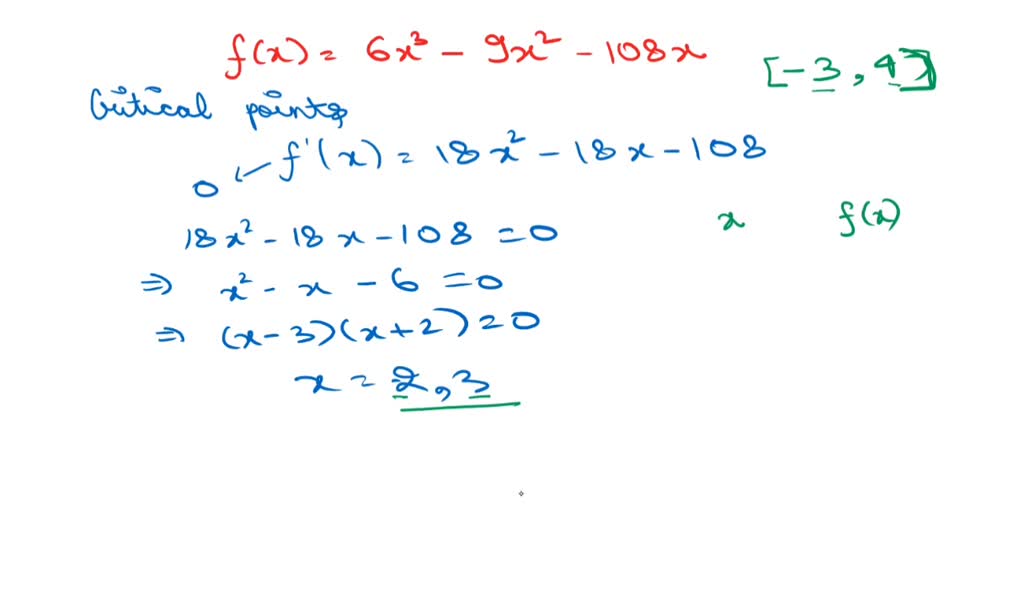 f(x) = 6x³ - 9x² - 108x [-3, 4]
Critical points
0 ↙ f'(x) = 18x² - 18x - 108
x f(x)
18x² - 18x - 108 = 0
⇒ x² - x - 6 = 0
⇒ (x-3)(x+2) = 0
x = 2, 3